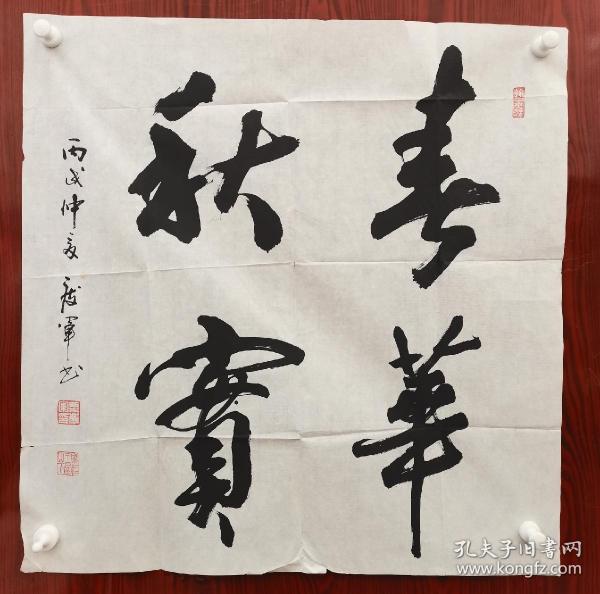 春華
秋實
丙戌仲夏
軍书
孔夫子旧書网
www.kongfz.com